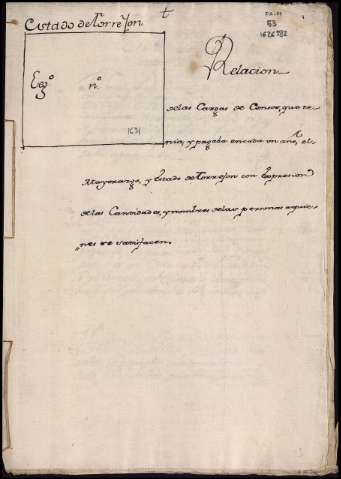 Estado de Torrejon
t
53
Leg.º n.º
1631
Relacion
de las Cargas de Censos, que te-
nia, y pagaba en cada un año, el
Mayorazgo, y Estado de Torrejon con Expresion
de las Cantidades, y nombres de las personas a quie-
nes se satisfacen.